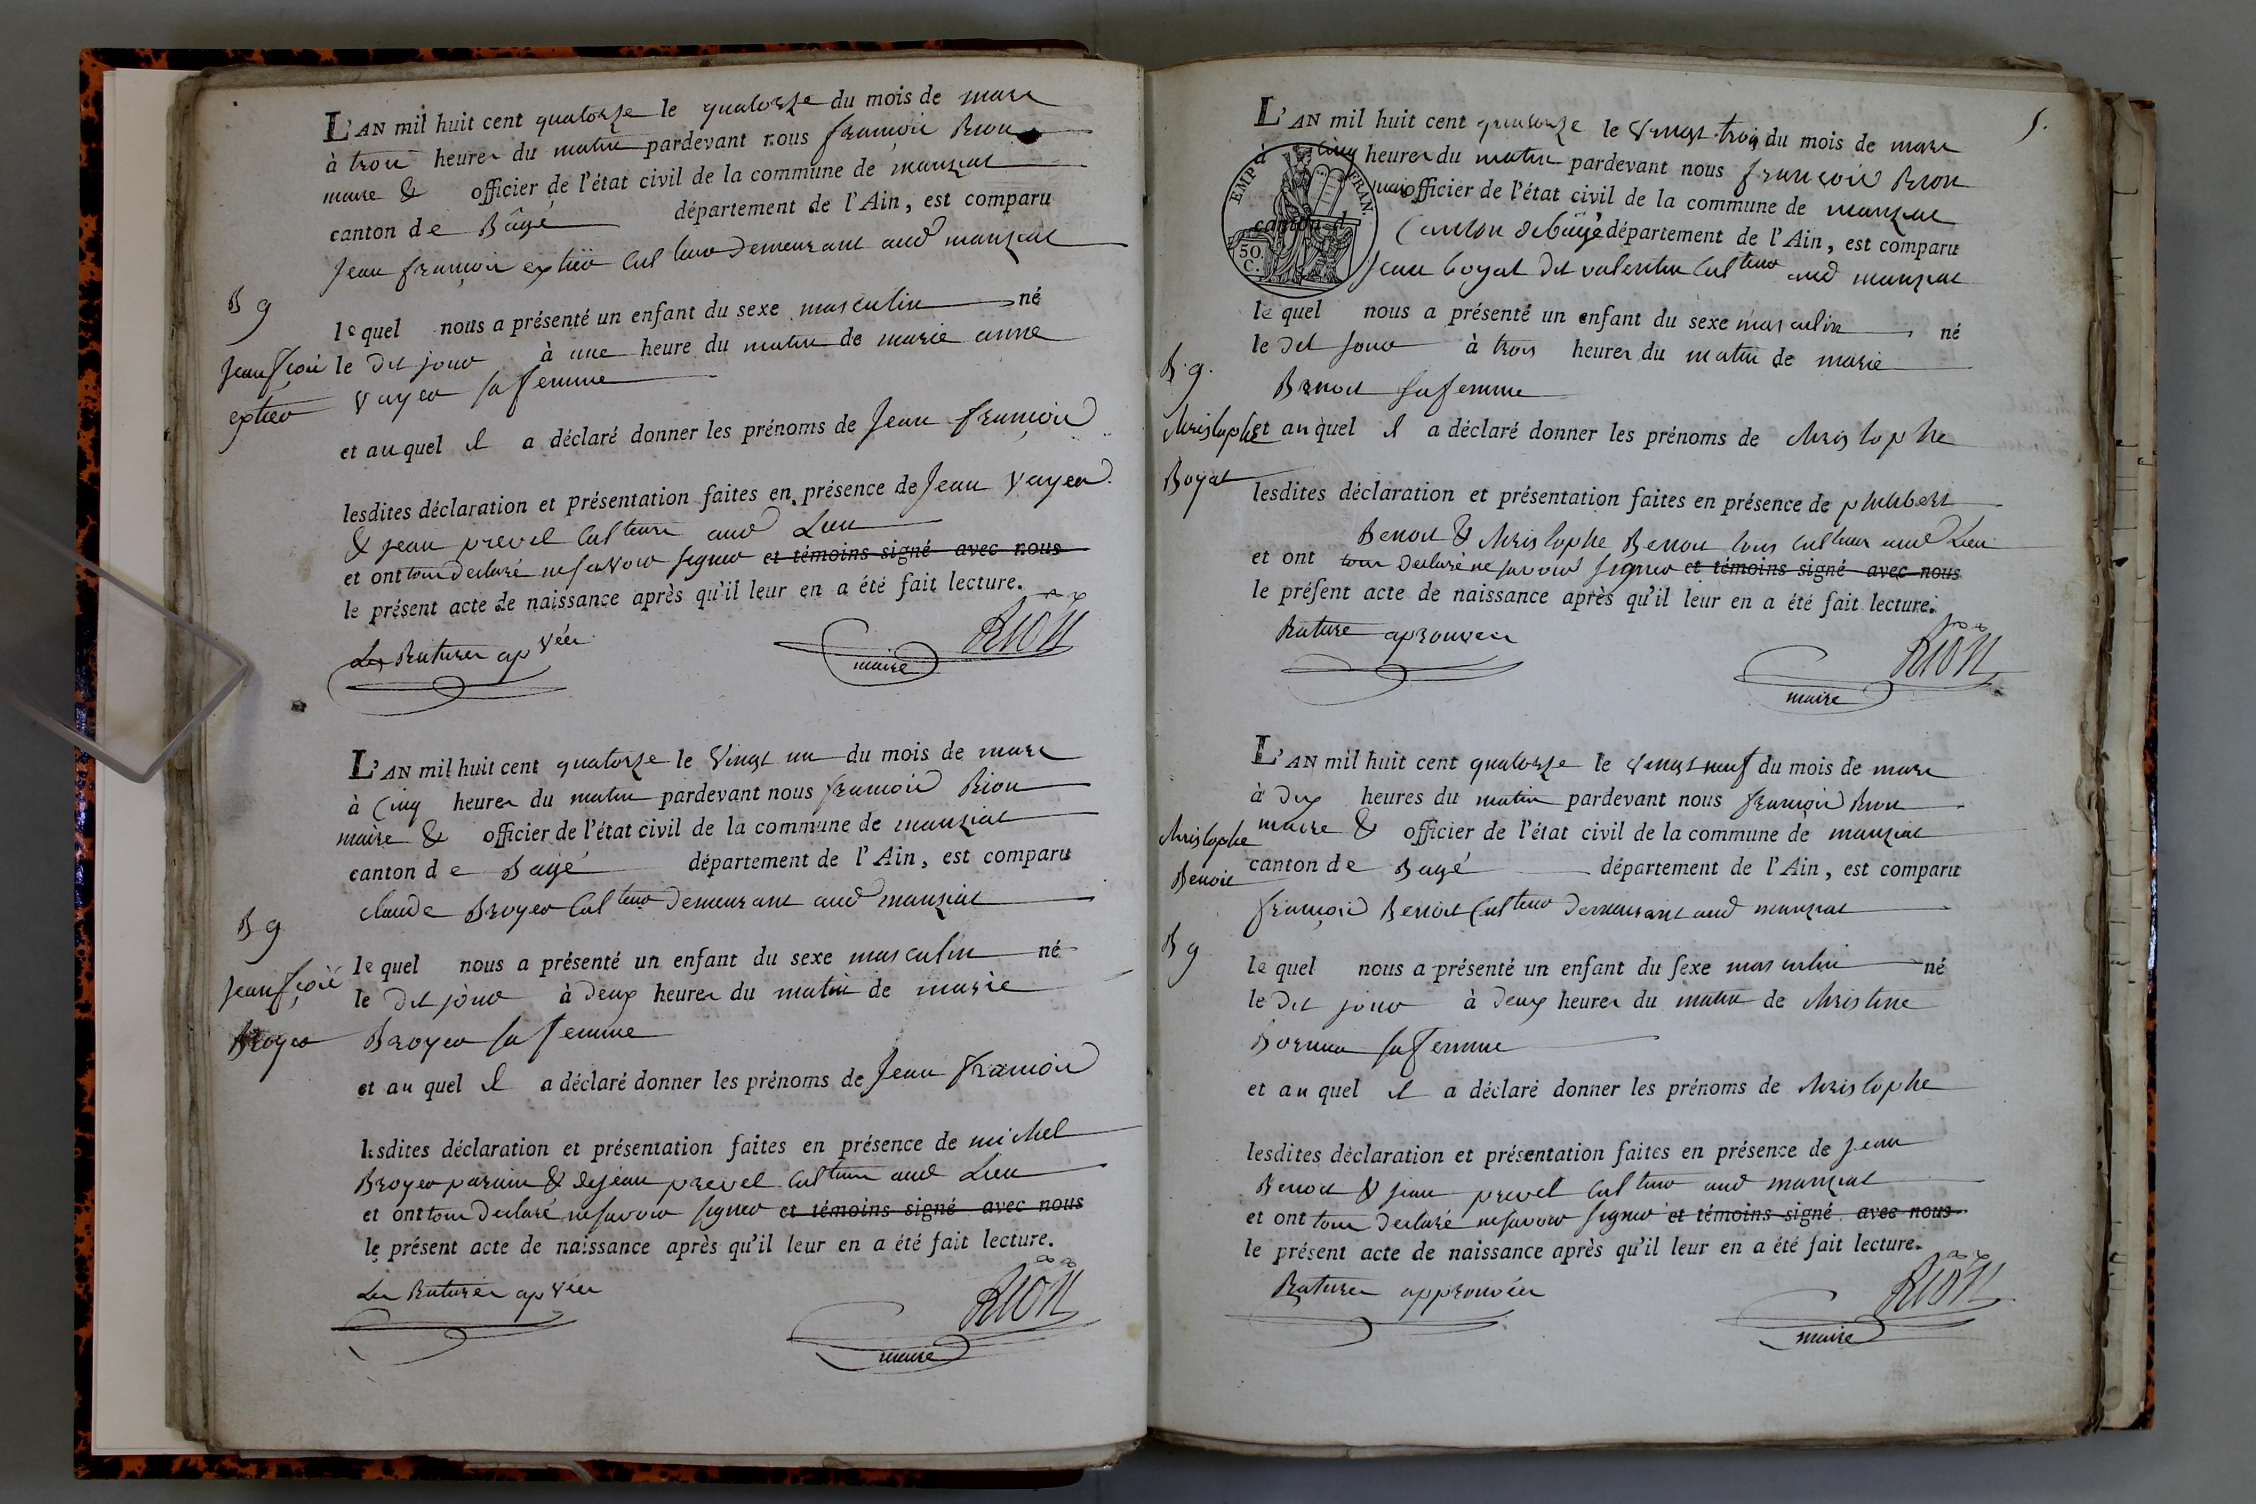 L'AN mil huit cent quatorze le quatorze du mois de mars
à trois heures du matin pardevant nous françois Rion
maire & officier de l'état civil de la commune de manziat
canton de Bâgé département de l'Ain, est comparu
Jean françois cultteur demeurant aud manziat
B g
le quel nous a présenté un enfant du sexe masculin né
Jean fçois le dit jour à une heure du matin de marie anne
Vayer sa femme
et au quel il a déclaré donner les prénoms de Jean françois
lesdites déclaration et présentation faites en présence de Jean Vayer
& jean prevel cultteurs aud Lieu
et ont tous declaré ne savoir signer et témoins signé avec nous
le présent acte de naissance après qu'il leur en a été fait lecture.
Les Ratures apvées
RION
maire
L'AN mil huit cent quatorze le vingt un du mois de mars
à cinq heures du matin pardevant nous françois Rion
maire & officier de l'état civil de la commune de manziat
canton de Bagé département de l'Ain, est comparu
claude Broyer cultteur demeurant aud manziat
B g
le quel nous a présenté un enfant du sexe masculin né
Jean fçois
le dit jour à deux heures du matin de marie
Broyer
Broyer sa femme
et au quel il a déclaré donner les prénoms de Jean françois
lesdites déclaration et présentation faites en présence de michel
Broyer parain & de jean prevel cultteurs aud Lieu
et ont tous declaré ne savoir signer et témoins signé avec nous
le présent acte de naissance après qu'il leur en a été fait lecture.
Les Ratures apvées
RION
maire
5.
L'AN mil huit cent quatorze le vingt trois du mois de mars
à cinq heures du matin pardevant nous françois Rion
maire officier de l'état civil de la commune de manziat
canton d canton de bâgé département de l'Ain, est comparu
EMP. FRAN.
50.
C.
Jean boyat dit valentin cultteur aud manziat
le quel nous a présenté un enfant du sexe masculin né
le dit jour à trois heures du matin de marie
B. g.
Benoit sa femme
Christophe
et au quel il a déclaré donner les prénoms de christophe
Boyat
lesdites déclaration et présentation faites en présence de philibert
Benoit & christophe Benoit tous cultteurs aud Lieu
et ont tous declaré ne savoir signer et témoins signé avec nous
le présent acte de naissance après qu'il leur en a été fait lecture.
Rature aprouvée
RION
maire
L'AN mil huit cent quatorze le vingt neuf du mois de mars
à dix heures du matin pardevant nous françois Rion
maire & officier de l'état civil de la commune de manziat
christophe
Benoit
canton de Bagé département de l'Ain, est comparu
françois Benoit cultteur demeurant aud manziat
B g
le quel nous a présenté un enfant du sexe masculin né
le dit jour à deux heures du matin de christine
sa femme
et au quel il a déclaré donner les prénoms de christophe
lesdites déclaration et présentation faites en présence de jean
Benoit & jean prevel cultteurs aud manziat
et ont tous declaré ne savoir signer et témoins signé avec nous
le présent acte de naissance après qu'il leur en a été fait lecture.
Ratures approuvées
RION
maire